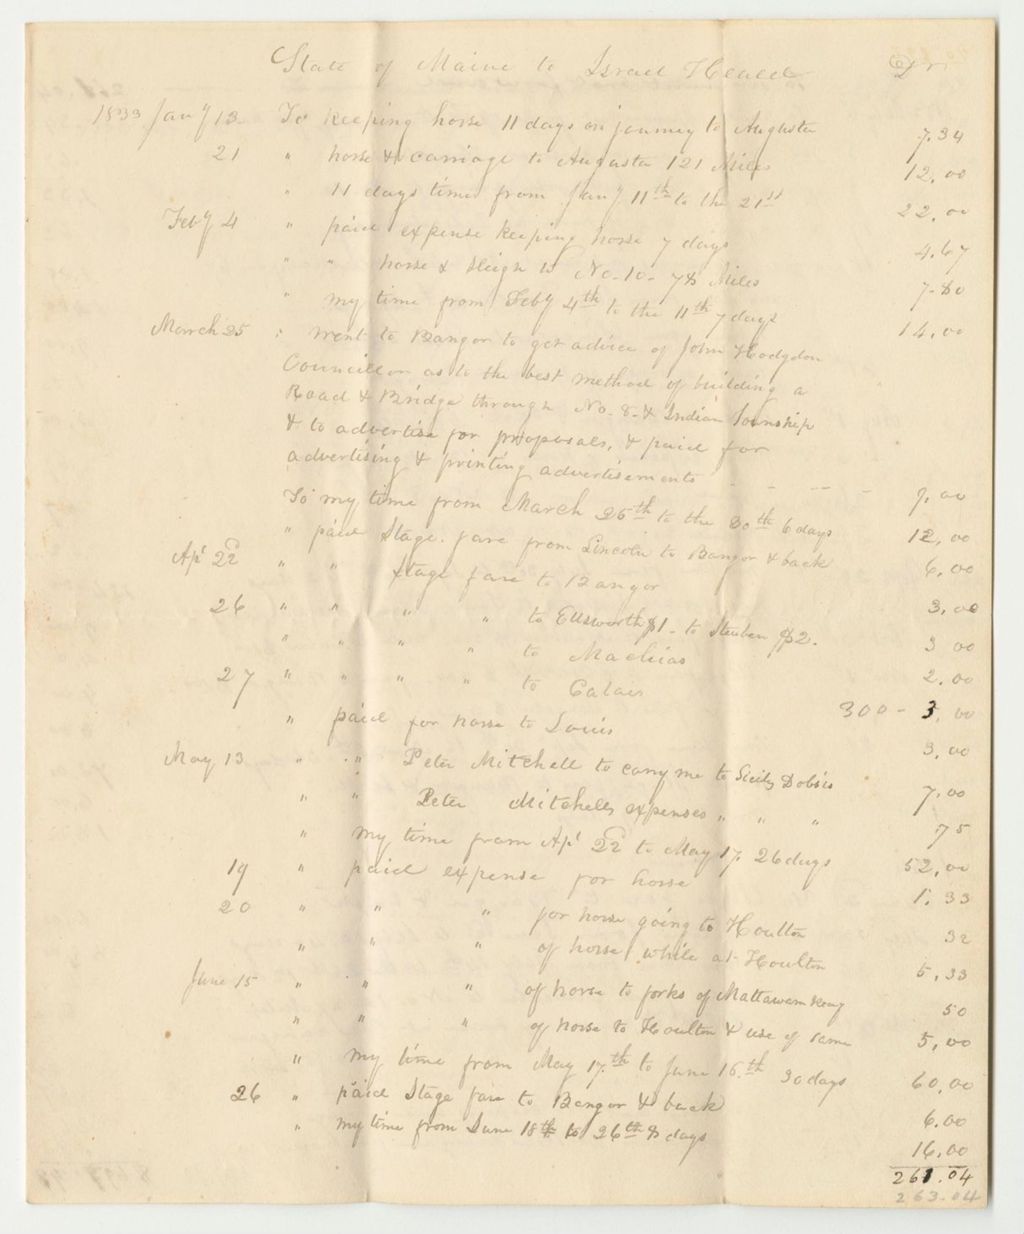 State of Maine to Israel Heald Dr.
1833 Jany 13 To Keeping horse 11 days on journey to Augusta 7.34
21 " horse & carriage to Augusta 121 Miles 12,00
" 11 days time from Jany 11th to the 21st 22,00
Feby 4 " paid expense keeping horse 7 days 4.67
" " horse & sleigh to No-10- 78 Miles 7-80
" my time from Feby 4th to the 11th 7 days 14,00
March 25 : went to Bangor to get advice of John Hodgdon
Councillor as to the best method of building a
Road & Bridge through No-8-& Indian Township
& to advertise for proposals, & paid for
advertising & printing advertisements - - -- - 9,00
To my time from March 25th to the 30th 6 days 12,00
" paid Stage fare from Lincoln to Bangor & back 6,00
Apl 22 " " Stage fare to Bangor 3,00
26 " " " " to Ellsworth $1- to Steuben $2. 3 00
" " " " to Machias 2.00
27 " " " " to Calais 300- 3,00
" paid for horse to Louis 3,00
May 13 " " Peter Mitchell to carry me to Sicily Dobsis 7,00
" " Peter Mitchells expenses " " " 75
" my time from Apl 22 to May 17. 26 days 52,00
19 " paid expense for horse 1.33
20 " " " for horse going to Houlton 32
" " " of horse while at Houlton 5,33
June 15 " " " of horse to forks of Mattawamkeag 50
" " " of horse to Houlton & use of same 5,00
" my time from May 17.th to June 16.th 30 days 60,00
26 " paid Stage fare to Bangor & back 6.00
" my time from June 18th to 26th 8 days 16.00
261.04
263.04